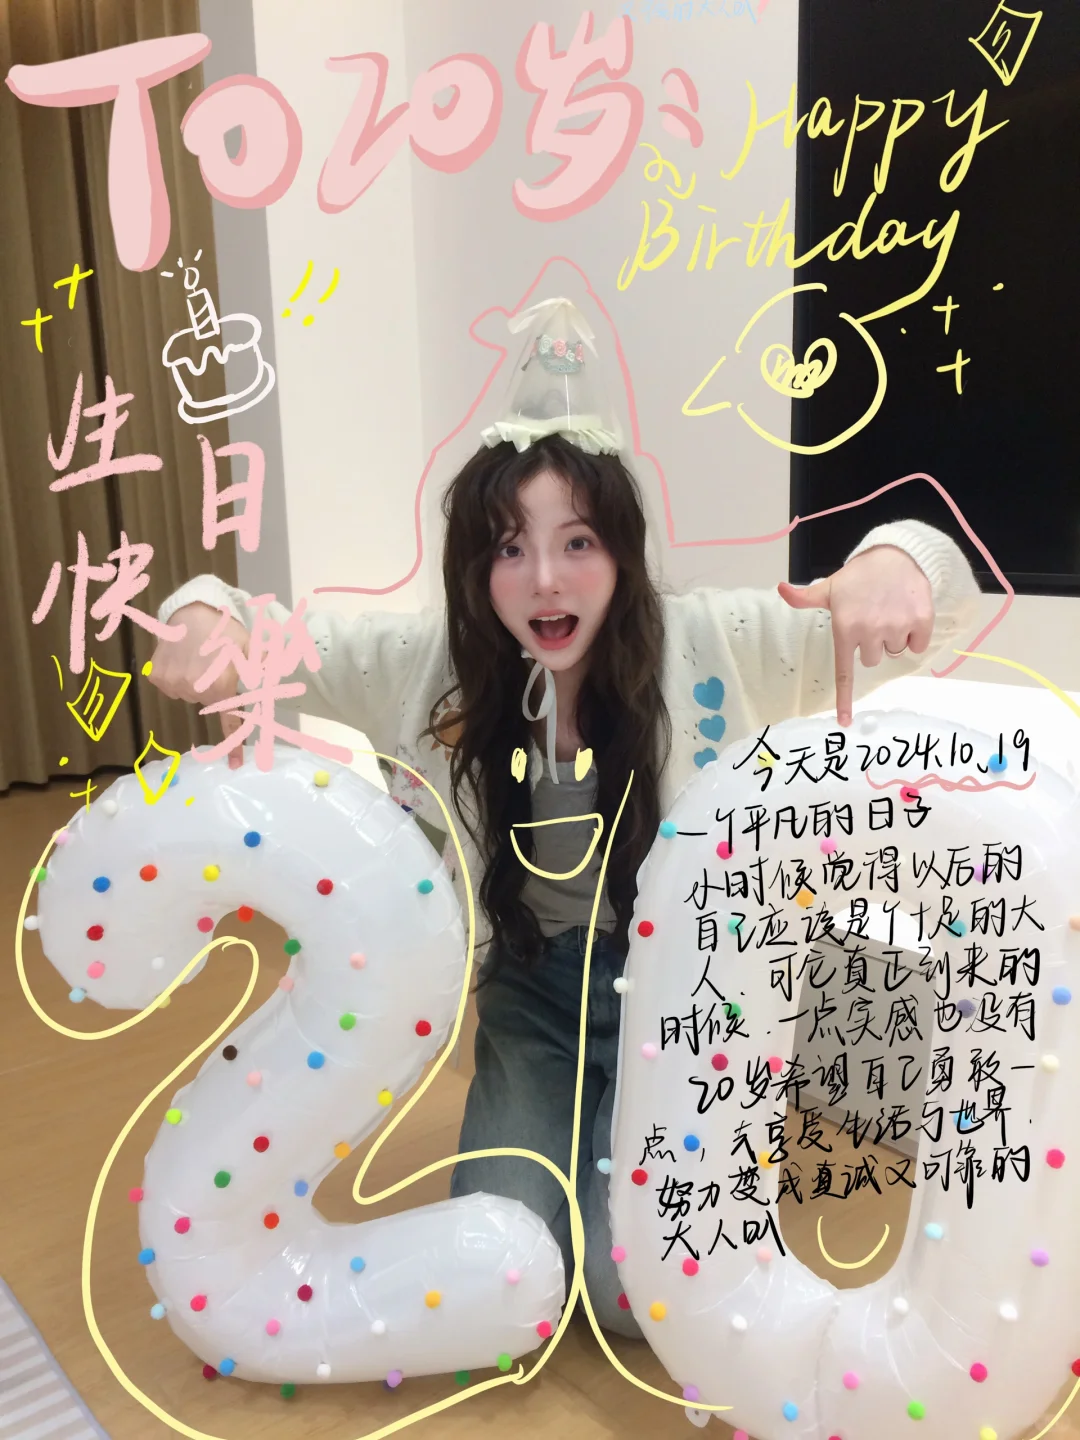 To 20岁：
Happy
Birthday
生日
快樂
今天是2024.10.19
一个平凡的日子
小时候觉得以后的
自己应该是个十足的大
人．可它真正到来的
时候．一点实感也没有
20岁希望自己勇敢一
点，去享受生活与世界．
努力变成真诚又可靠的
大人叭